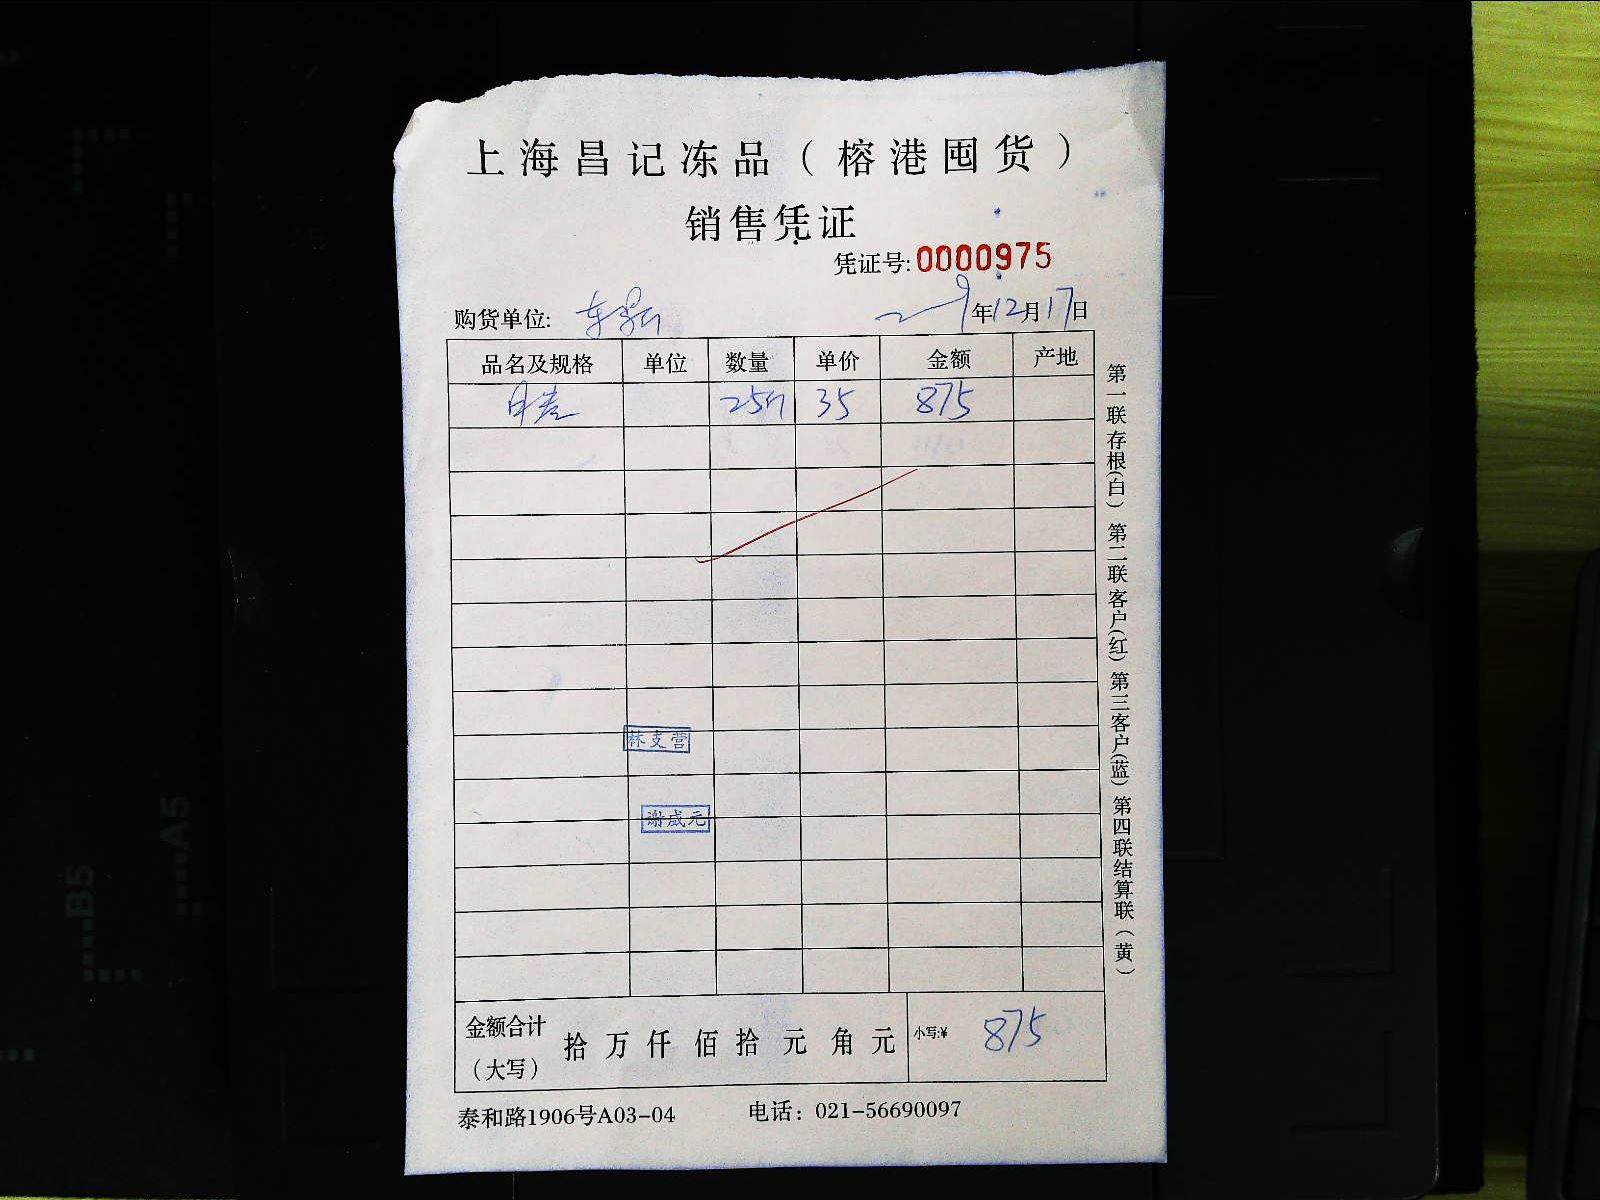 上海昌记冻品（榕港囤货）
销售凭证
凭证号:0000975
购货单位:
年12月17日
品名及规格 单位 数量 单价 金额 产地
25斤 35 875
林支营
谢成元
金额合计（大写） 拾 万 仟 佰 拾 元 角 元 小写:¥ 875
泰和路1906号A03-04 电话：021-56690097
第一联存根(白) 第二联客户(红) 第三客户(蓝) 第四联结算联(黄)
B5
A5